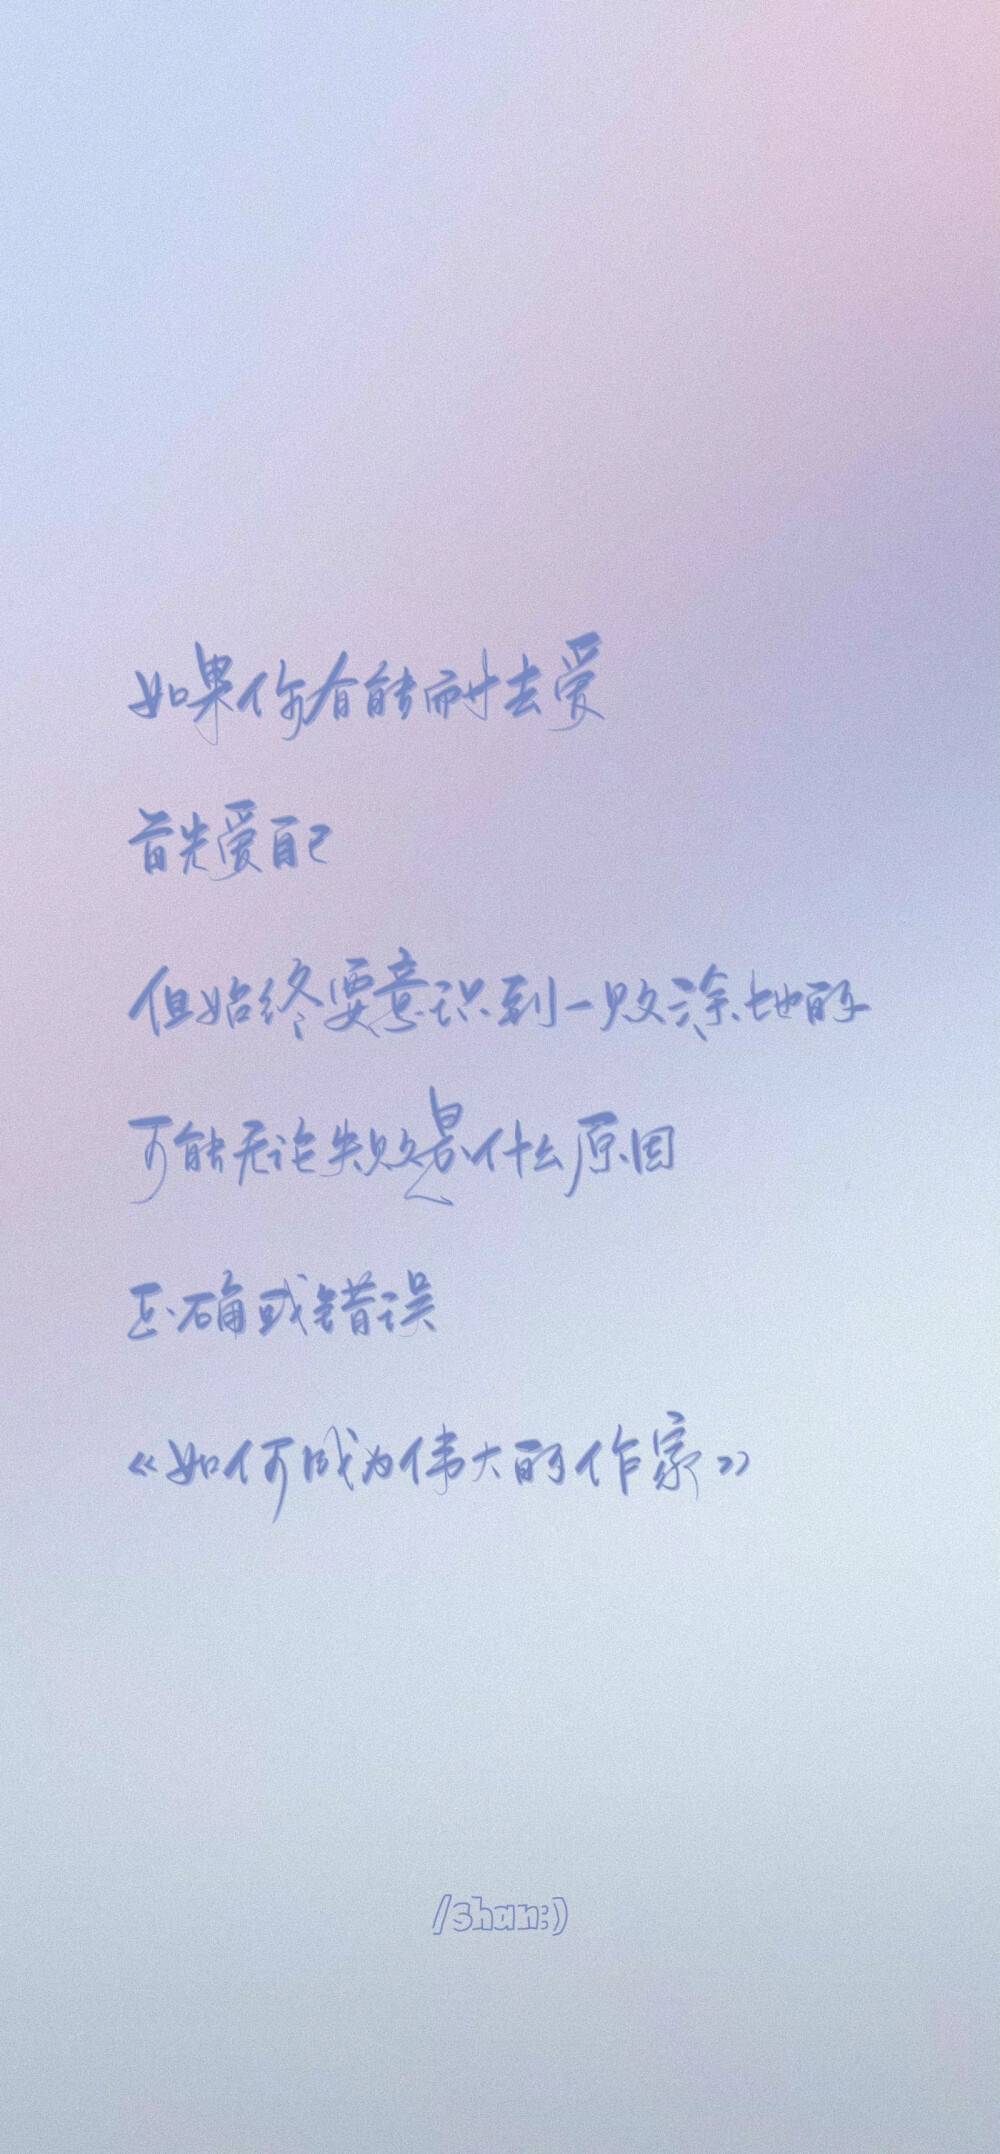 如果你有能耐去爱
首先爱自己
但始终要意识到一败涂地的
可能无论失败是什么原因
正确或错误
《如何成为伟大的作家》
/shan:)